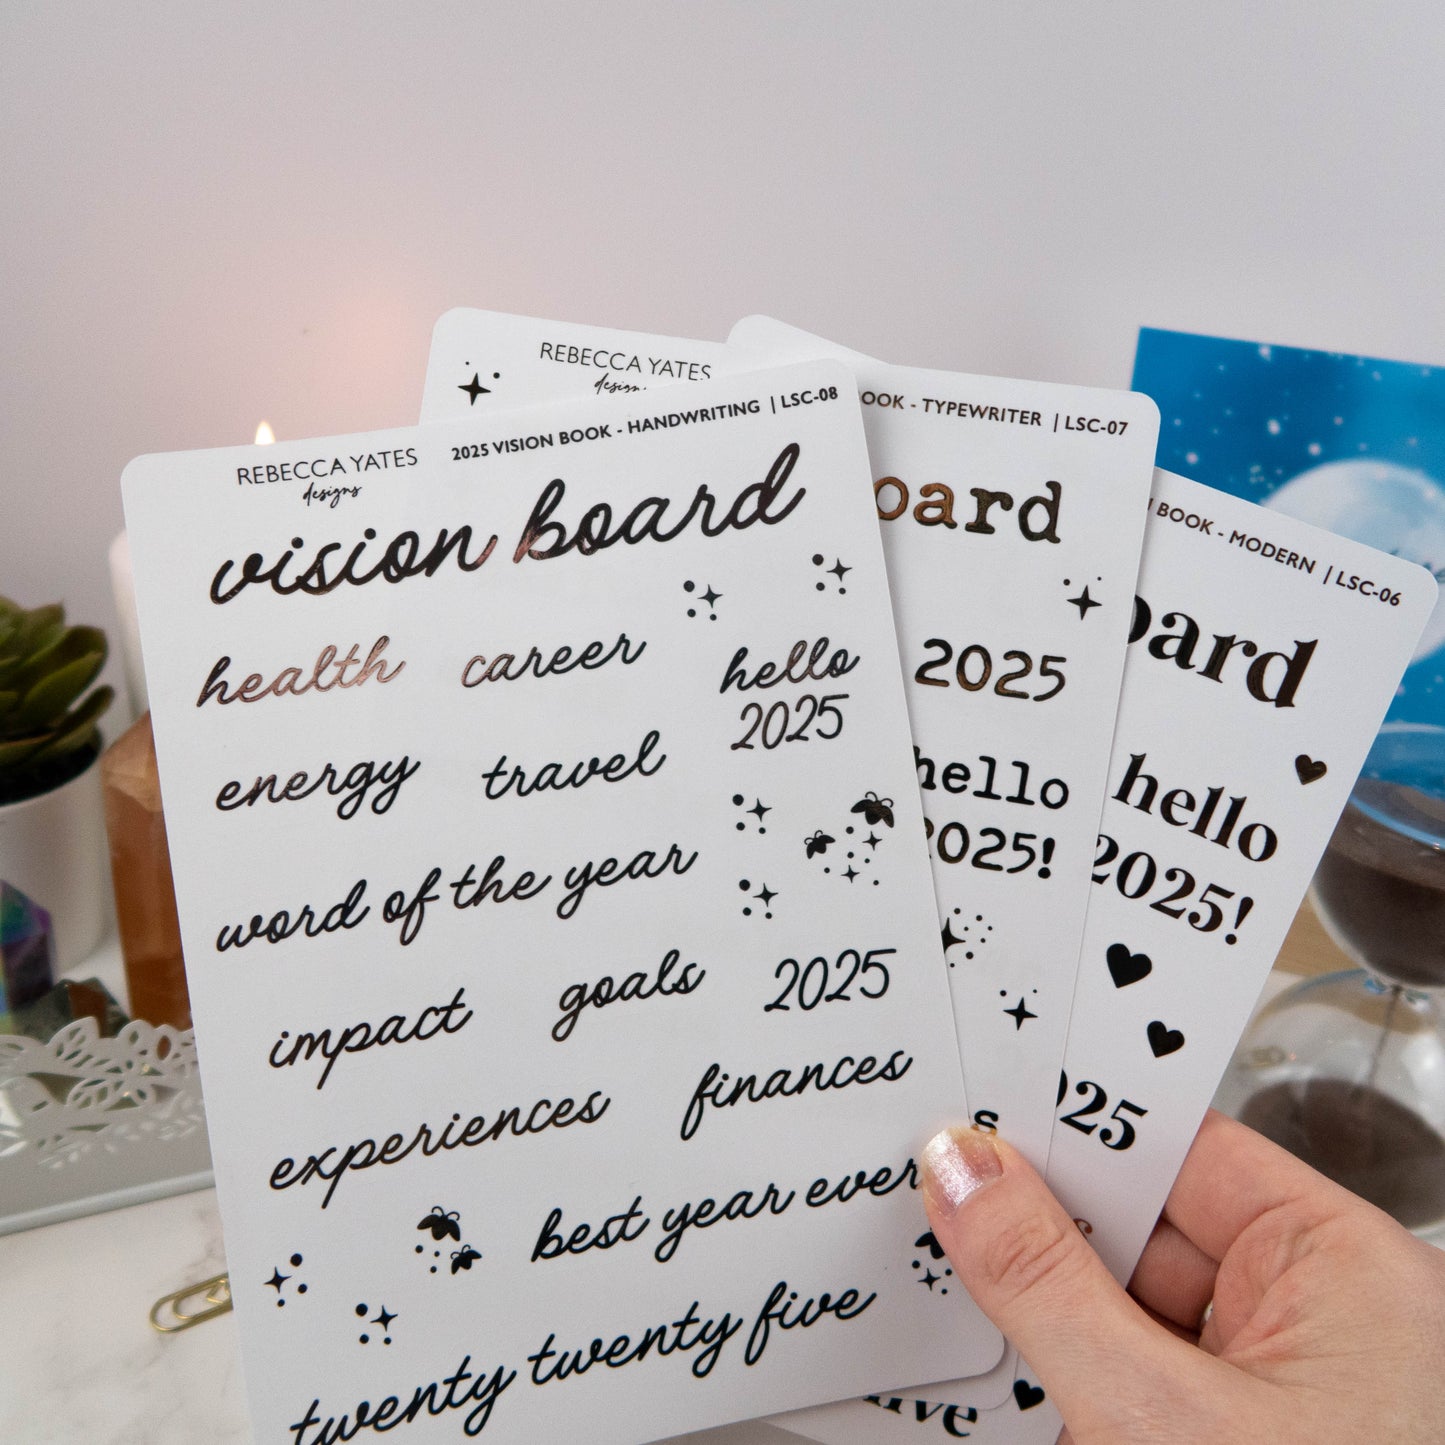 REBECCA YATES
designs
2025 VISION BOOK - HANDWRITING | LSC-08
vision board
health career
hello
2025
energy travel
word of the year
impact goals 2025
experiences finances
best year ever
twenty twenty five
REBECCA YATES
designs
OOK - TYPEWRITER | LSC-07
oard
2025
hello
2025!
s
BOOK - MODERN | LSC-06
oard
hello
2025!
025
ive